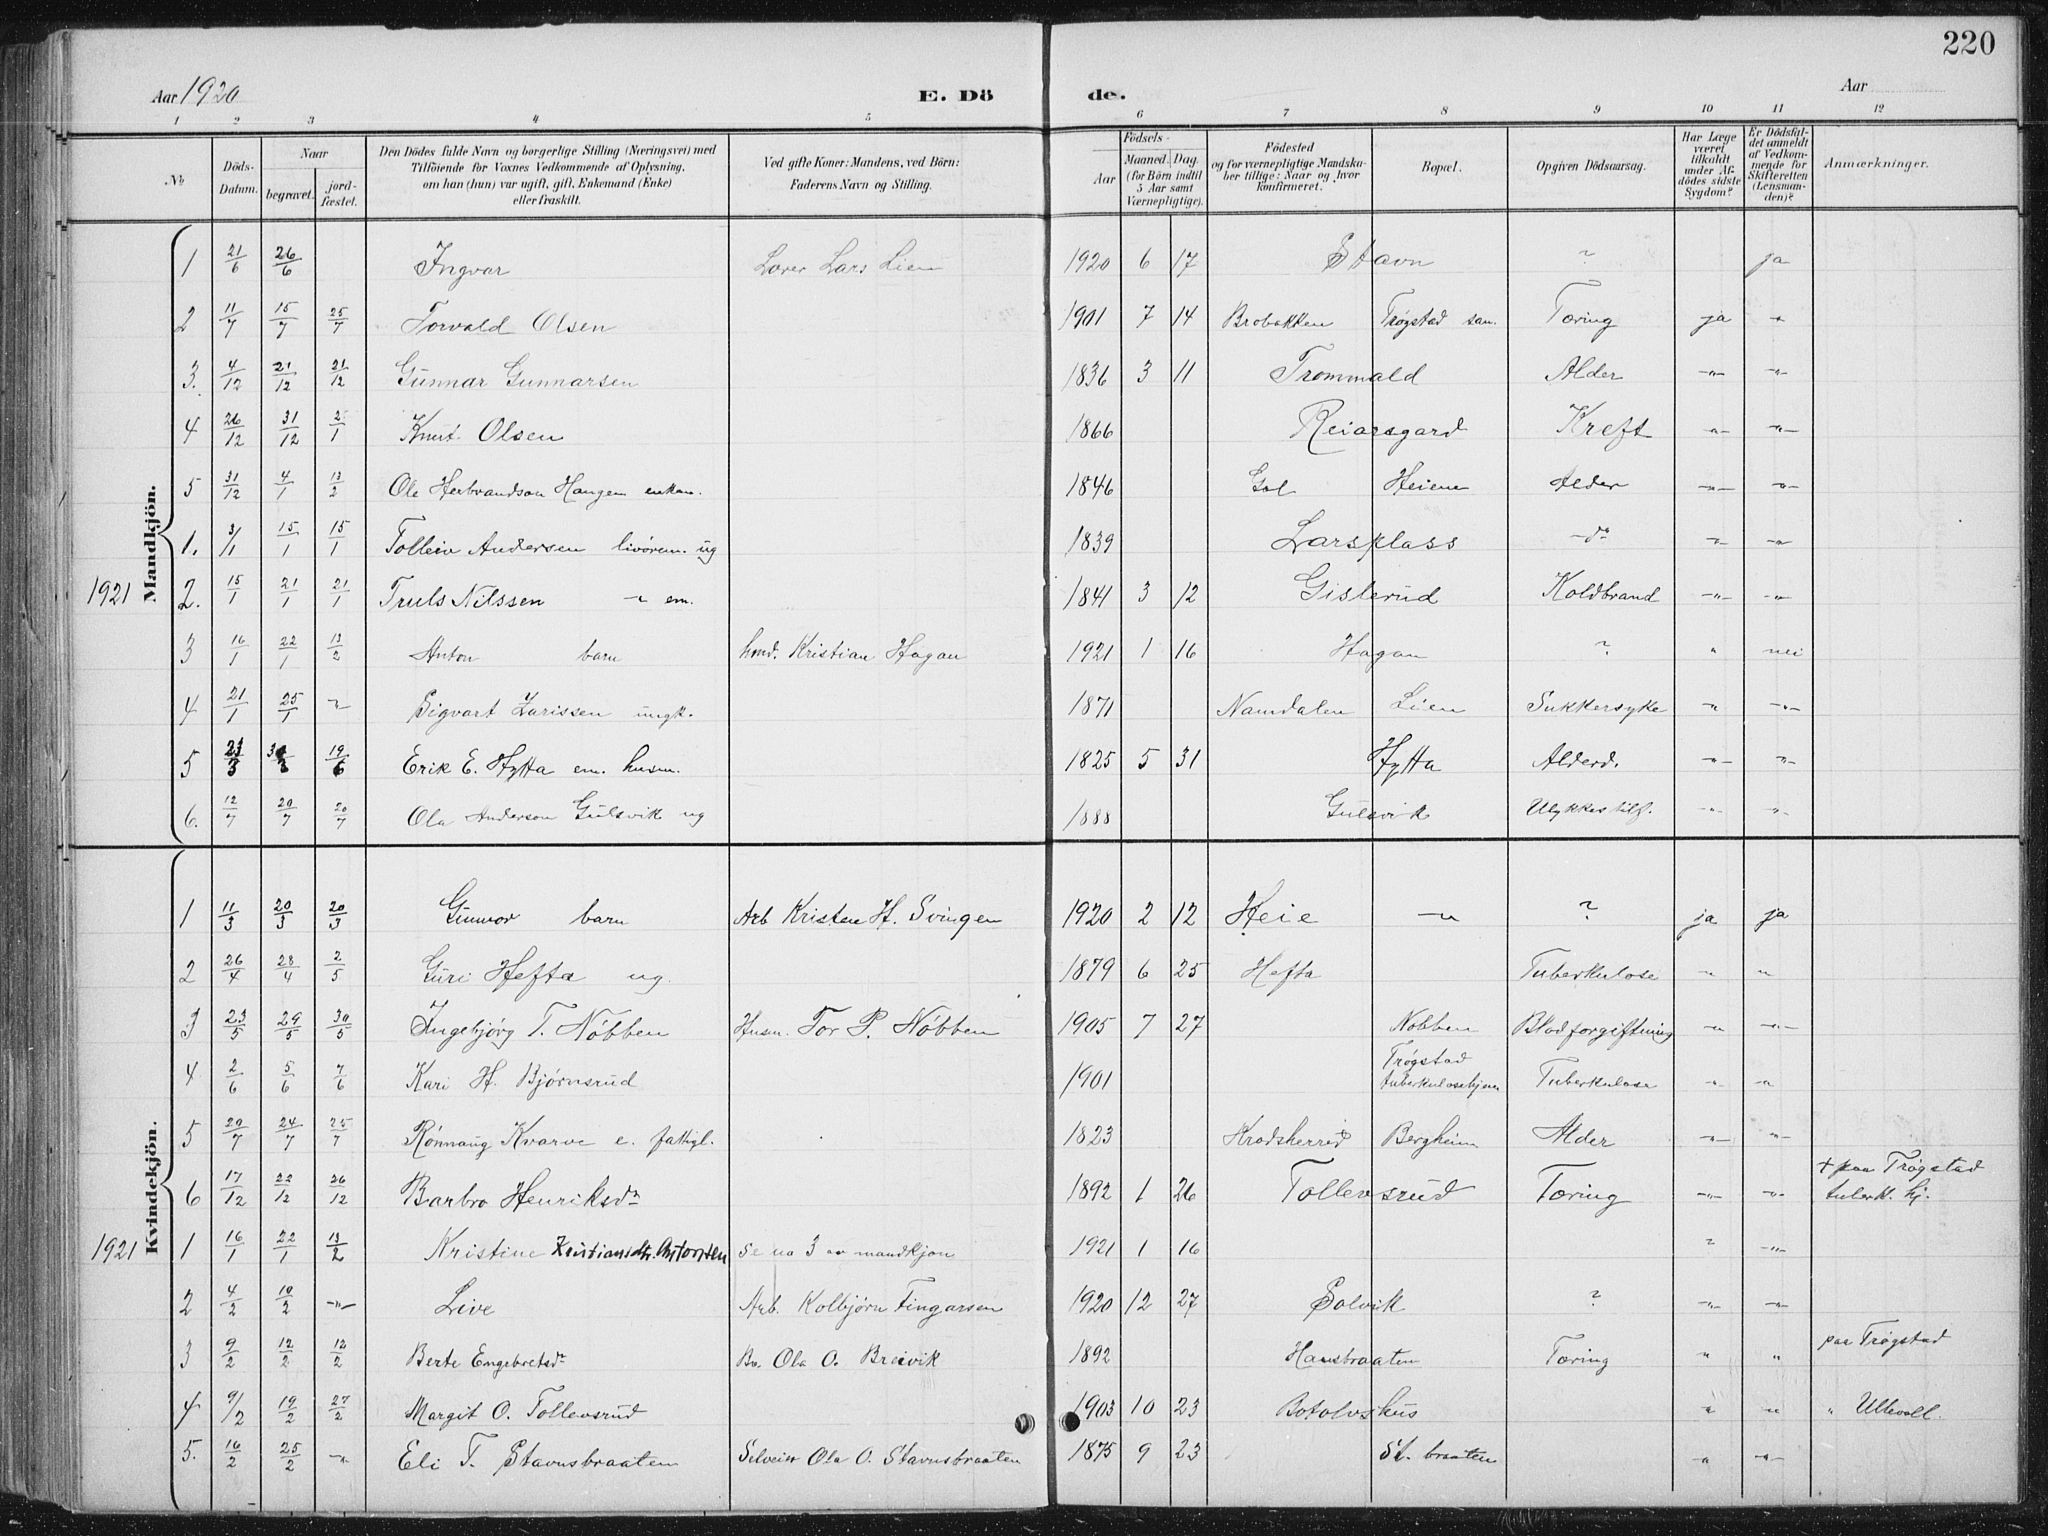 220
Aar 1920 E. Dö de. Aar
1 2 3 4 5 6 7 8 9 10 11 12
№ Döds-Datum. Naar begravet. jord-fæstet. Den Dödes fulde Navn og borgerlige Stilling (Næringsvei) med Tilföiende for Voxnes Vedkommende af Oplysning, om han (hun) var ugift, gift, Enkemand (Enke) eller fraskilt. Ved gifte Koner: Mandens, ved Börn: Faderens Navn og Stilling. Födsels- Aar Maaned. Dag. (for Börn indtil 5 Aar samt Værnepligtige). Födested og for værnepligtige Mandska-ber tillige: Naar og hvor konfirmeret. Bopæl. Opgiven Dödsaarsag. Har Læge været tilkaldt under Af-dödes sidste Sygdom? Er Dödsfal-det anmeldt af Vedkom-mende for Skifteretten (Lensman-den)? Anmærkninger.
Mandkjön.
1 21/6 26/6 Ingvar Lærer Lars Lien 1920 6 17 Stavn ? ja
2 11/7 15/7 25/7 Torvald Olsen 1901 7 14 Brobakken Trøgstad san. Tæring ja "
3. 4/12 21/12 21/12 Gunnar Gunnarsen 1836 3 11 Trommald Alder -"- -"-
4 26/12 31/12 2/1 Knut Olsen 1866 Reiarsgard Kreft -"- -"-
5 31/12 4/1 13/2 Ole Herbrandson Haugen enkem. 1846 Gol Heiene Alder -"- -"-
1. 3/1 15/1 15/1 Tolleiv Andersen livørem. ug 1839 Larsplass -do- -"- -"-
1921 2. 15/1 21/1 21/1 Truls Nilssen -"- em. 1841 3 12 Gislerud Koldbrand -"- -"-
3 16/1 22/1 13/2 Anton barn hmd. Kristian Hagan 1921 1 16 Hagan ? " nei
4 21/1 25/1 -"- Sigvart Larissen ungk. 1871 Namdalen Lien Sukkersyke " -"-
5 23/3 3/3 19/6 Erik E. Hytta em. husm. 1825 5 31 Hytta Alderd. -"- -"-
6. 12/7 20/7 20/7 Ola Anderson Gulsvik ug 1888 Gulsvik Ulykkestilf. -"- "
Kvindekjön.
1 11/3 20/3 20/3 Gunvor barn Arb Kristen H. Svingen 1920 2 12 Heie -"- ? ja ja
2 26/4 28/4 2/5 Guri Hefta ug. 1879 6 25 Hefta Tuberkulose " "
3 23/5 29/5 30/5 Ingebjørg T. Nøbben Husm. Tor P. Nøbben 1905 7 27 Nøbben Blodforgiftning -"- -"-
4 2/6 5/6 7/6 Kari H. Bjørnsrud 1901 Trøgstad tuberkulosehjem Tuberkulose " "
5 20/7 24/7 25/7 Rønnaug Kvarve e. fattigl. 1823 Krødsherred Bergheim Alder -"- -"-
6 17/12 22/12 26/12 Barbro Henriksdr 1892 1 26 Tollevsrud Tæring -"- -"- + paa Trøgstad tuberk. hj.
1921 1 16/1 22/1 13/2 Kristine Kristiansdtr. se no 3 av mandkjøn 1921 1 16 " -"-
2 4/2 10/2 -"- Live Arb. Kolbjørn Fingarsen 1920 12 27 Solvik ? -"- -"-
3 9/2 12/2 12/2 Berte Engebretsdr Br. Ola O. Breivik 1892 Hansbraaten Tæring " " paa Trøgstad
4 9/2 19/2 27/2 Margit O. Tollevsrud 1903 10 23 Botolvshus " " " Ullevoll.
5. 16/2 25/2 -"- Eli T. Stavnsbraaten Selveier Ola O. Stavnsbraaten 1875 9 23 St. braaten " -"-